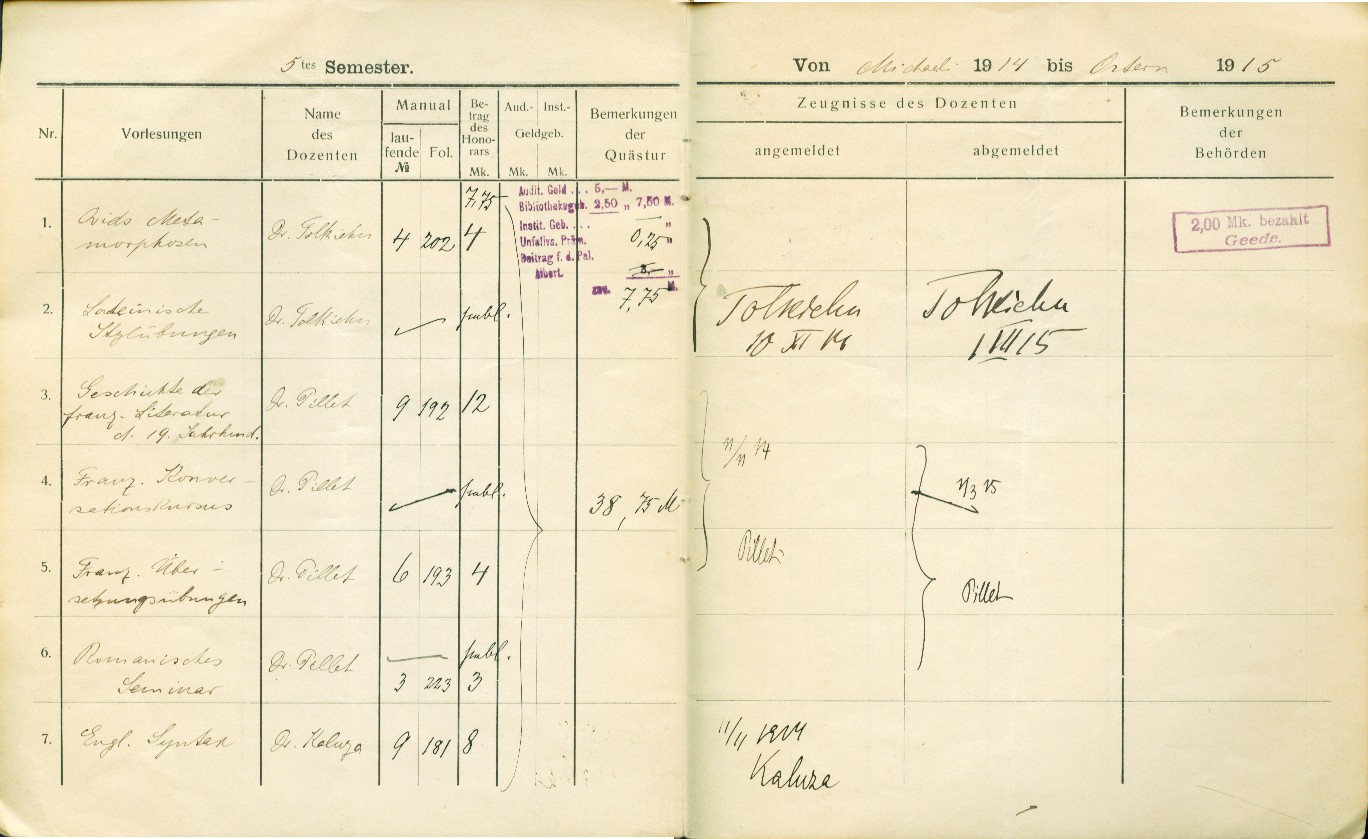 5tes Semester.
Von Michaeli 1914 bis Ostern 1915
Nr.
Vorlesungen
Name
des
Dozenten
Manual
lau-
fende
№
Fol.
Be-
trag
des
Hono-
rars
Mk.
Aud.- Inst.-
Geldgeb.
Mk. Mk.
Bemerkungen
der
Quästur
Zeugnisse des Dozenten
angemeldet
abgemeldet
Bemerkungen
der
Behörden
7,75
Audit. Geld . . . 5,— M.
Bibliotheksgeb. 2,50 „ 7,50 M.
Instit. Geb. . . . — „
Unfallvs. Präm. 0,25 „
Beitrag f. d. Pal.
Albert. 3,— „
zus. 7,75 M.
2,00 Mk. bezahlt
Geede.
1.
Ovids Meta-
morphosen
Dr. Tolkiehn
4 202 4
2.
Lateinische
Stylübungen
Dr. Tolkiehn
publ.
Tolkiehn
10 XI 14
Tolkiehn
1 III 15
3.
Geschichte der
franz. Literatur
d. 19. Jahrhund.
Dr. Pillet
9 192 12
4.
Franz. Konver-
sationskursus
Dr. Pillet
publ.
38,75 M
11/11 14
Pillet
1/3 15
Pillet
5.
Franz. Über-
setzungsübungen
Dr. Pillet
6 193 4
6.
Romanisches
Seminar
Dr. Pillet
publ.
3 223 3
7.
Engl. Syntax
Dr. Kaluza
9 181 8
11/11 1914
Kaluza